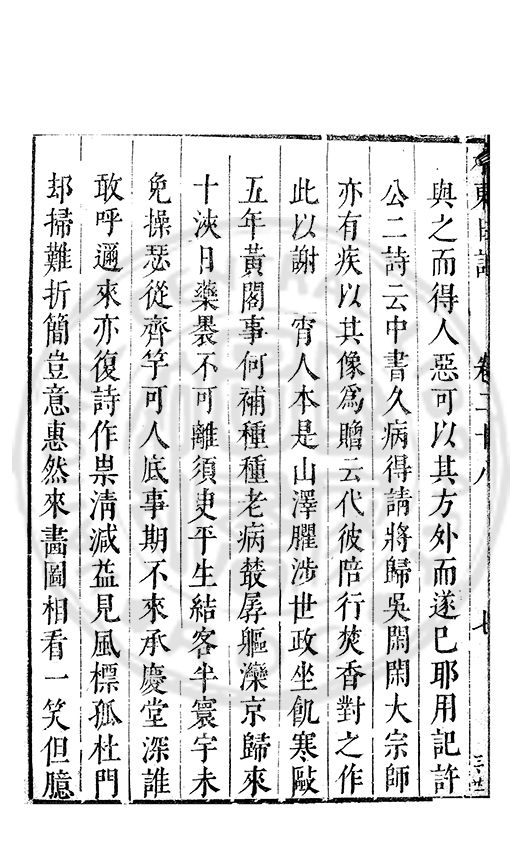 卷二十八
七
與之而得人惡可以其方外而遂已耶用記許
公二詩云中書久病得請將歸吳閑閑大宗師
亦有疾以其像爲贈云代彼陪行焚香對之作
此以謝　宵人本是山澤臞涉世政坐飢寒敺
五年黃閣事何補種種老病叢孱軀灤京歸來
十浹日藥褁不可離須臾平生結客半寰宇未
免操瑟從齊竽可人底事期不來承慶堂深誰
敢呼邇來亦復詩作祟清減益見風標孤杜門
却掃難折簡豈意惠然來畵圖相看一笑但臆